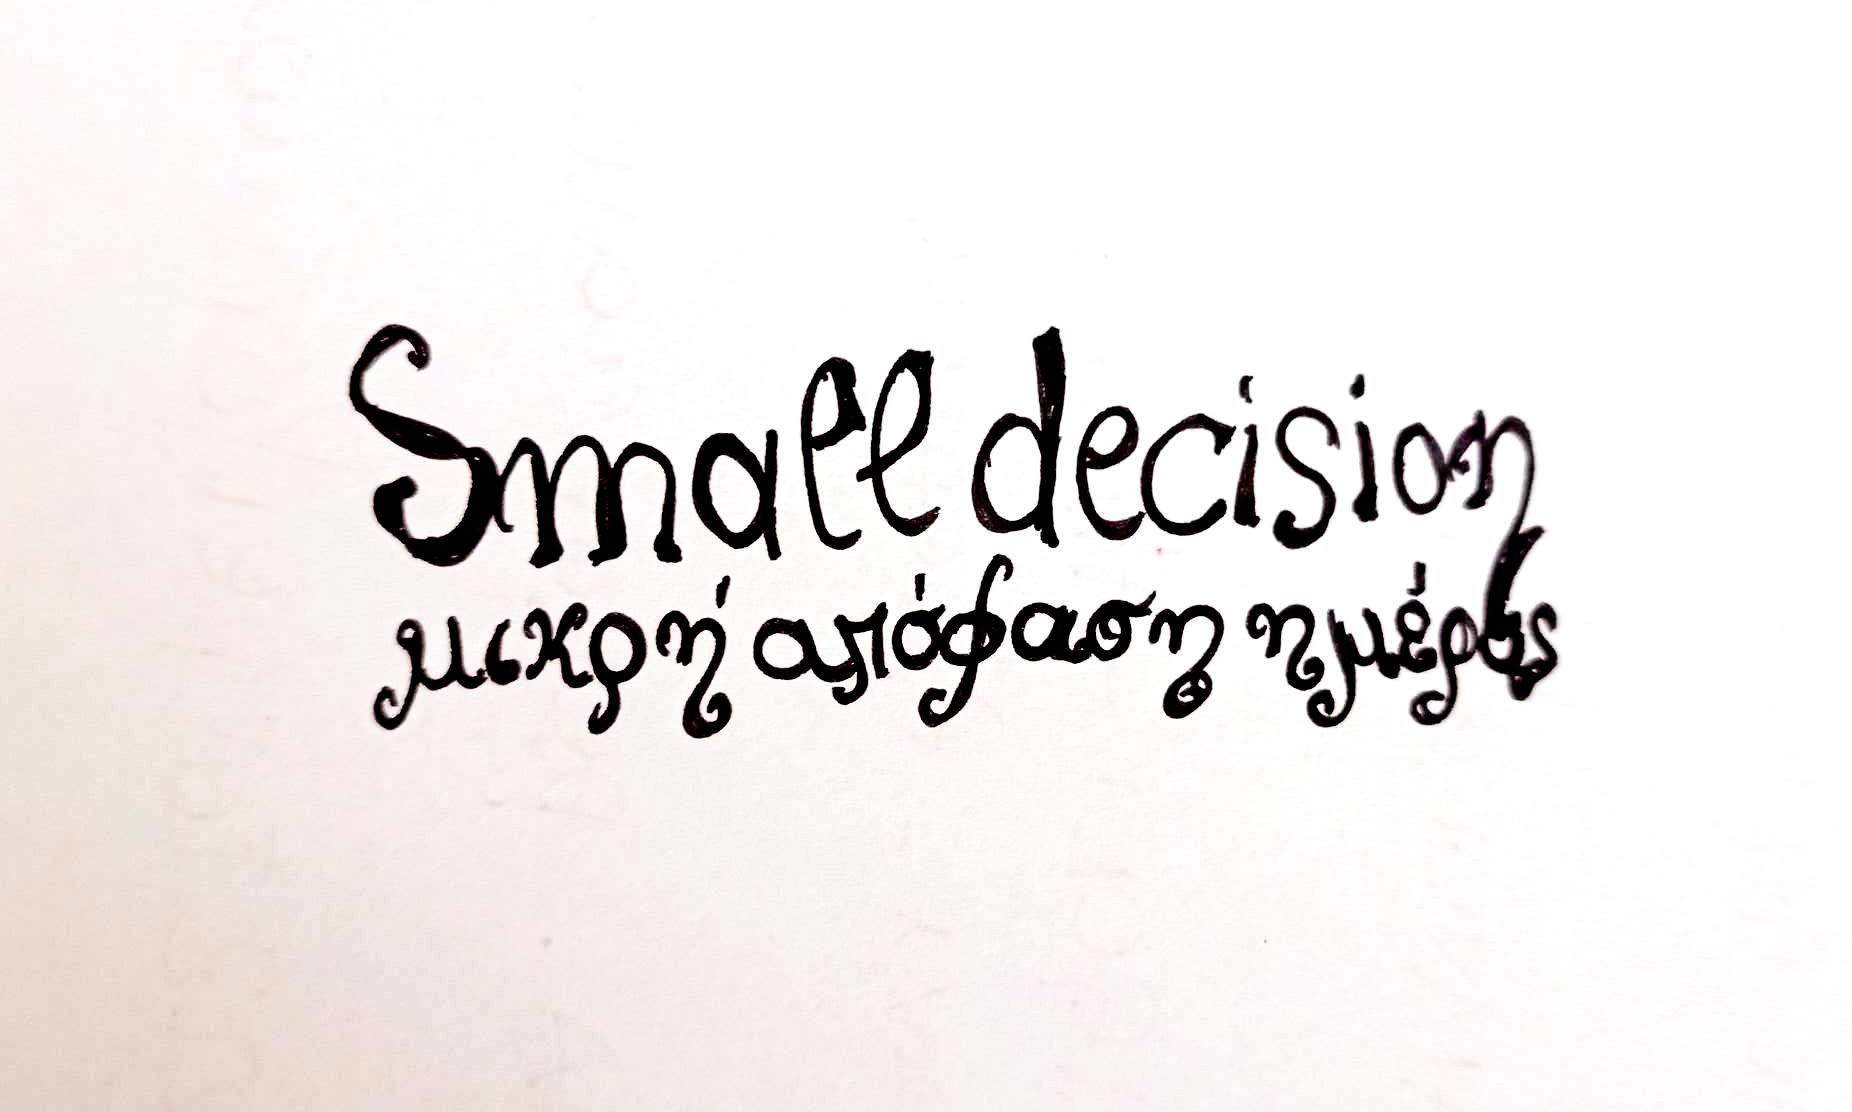 Small decision
μικρή απόφαση ημέρας